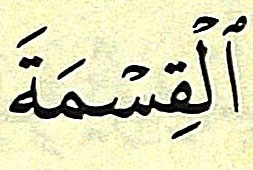 ٱلْقِسْمَةَ